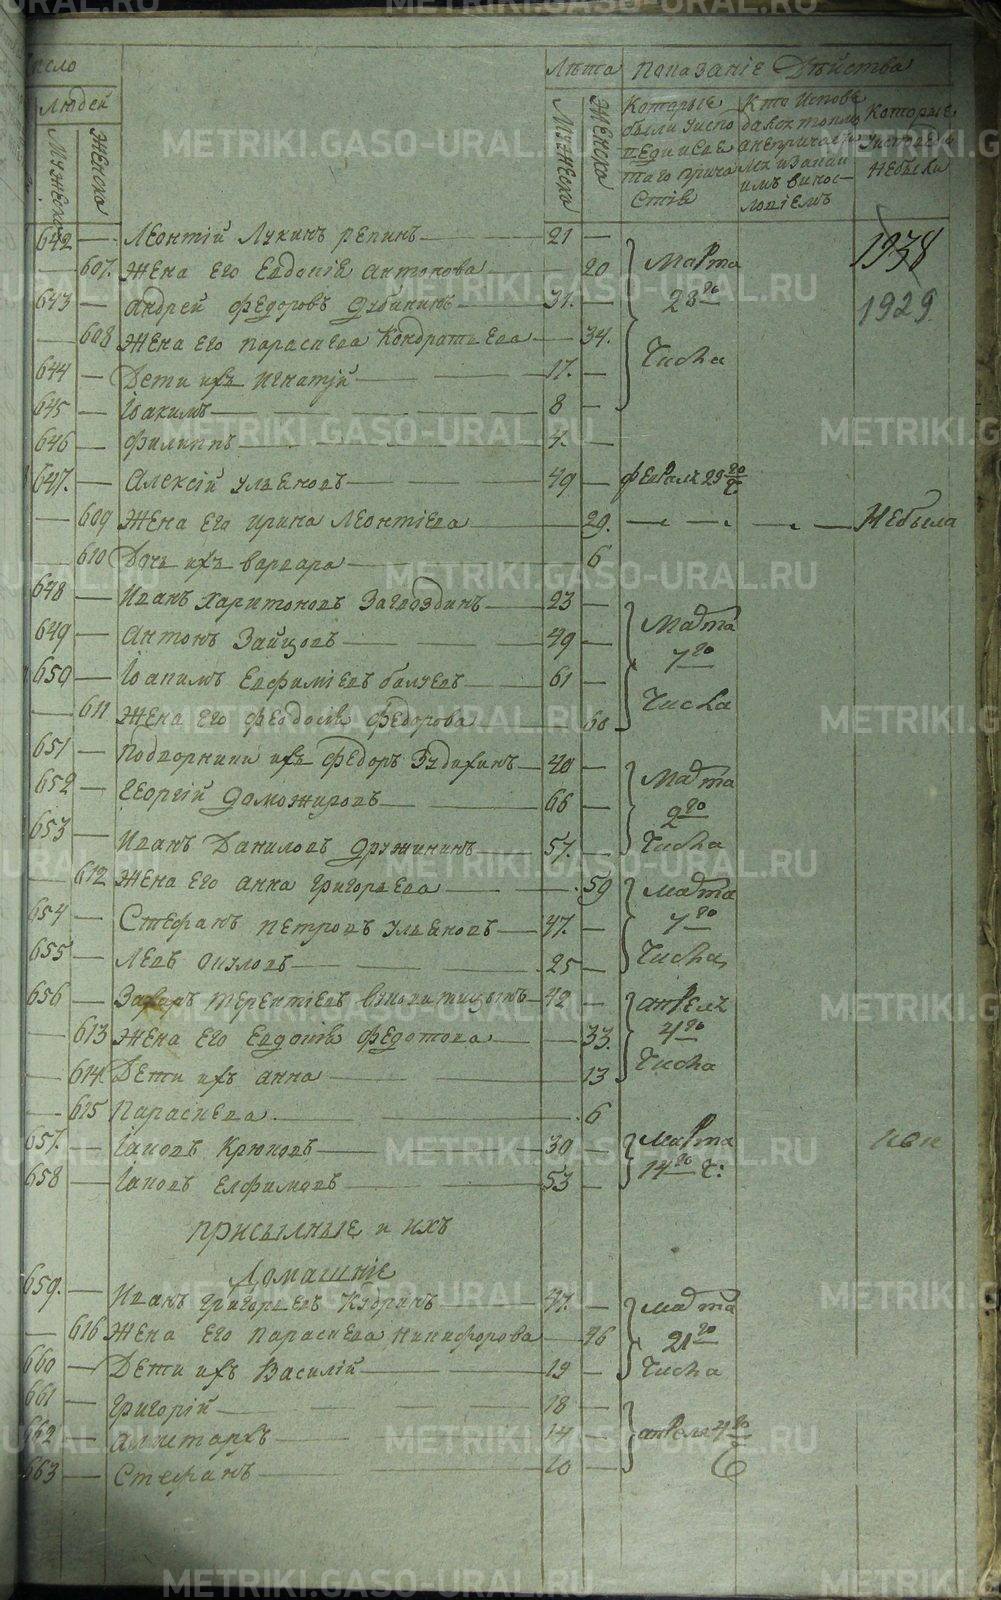 Число Лѣта Показаніе Дѣйства
Людей
Мужеска Женска Мужеска Женска
Которые были у испо
веди и свя
таго прича
стія
Кто испове
дался токмо
а непричаст
имъ винос-
ловіемъ
Которые
у исповеди
небыли
642 — Леонтій Лукинъ Репинъ — 21 —
1938
— 607. Жена его Евдокія Антонова — 20 Марта
643 — Андрей Федоровъ Дубининъ — 31. — 28го
1929
— 608 Жена его Параскева Кондратьева — 34.
644 — Дети ихъ Игнатій — 17. — Числа
645 — Іоакимъ — 8 —
646 — Филиппъ — 4. —
647. — Алексій Ульяновъ — 49 — февраля 29го ч
— 609 Жена его Ирина Леонтіева — 29. — — — Небыла
— 610 Дочь ихъ Варвара — 6
648 — Иванъ Харитоновъ Загвоздинъ — 23 — Марта
649 — Антонъ Зайцовъ — 49 — 7го
650 — Іоакимъ Евфиміевъ Балуевъ — 61 — Числа
— 611 Жена его Феодосія Федорова — 60
651 — Подворники ихъ Федоръ Зудихинъ — 40 — Марта
652 — Георгій Доможировъ — 66 — 2го
653 — Иванъ Даниловъ Дружининъ — 57. — Числа
— 612 Жена его Анна Григорьева — 59 Марта
654 — Стефанъ Петровъ Ульяновъ — 47. — 7го
655 — Левъ Окуловъ — 25 — Числа
656 — Захаръ Терентіевъ Винокитицынъ — 42 — апрель
— 613 Жена его Евдокія Федотова — 33. 4го
— 614. Дети ихъ Анна — 13 Числа
— 615 Параскева — 6
657. — Іаковъ Крюковъ — 30 — Марта
658 — Іаковъ Елфимовъ — 53 — 14го ч:
присыльные и ихъ
Домашніе
659. — Иванъ Григорьевъ Кудринъ — 47. — Марта
— 616 Жена его Параскева Никифорова — 46 21го
660 — Дети ихъ Василій — 19 — Числа
661 — Григорій — 18 —
662 — Алистархъ — 14 — апреля 4го ч
663 — Стефанъ — 10 —
METRIKI.GASO-URAL.RU